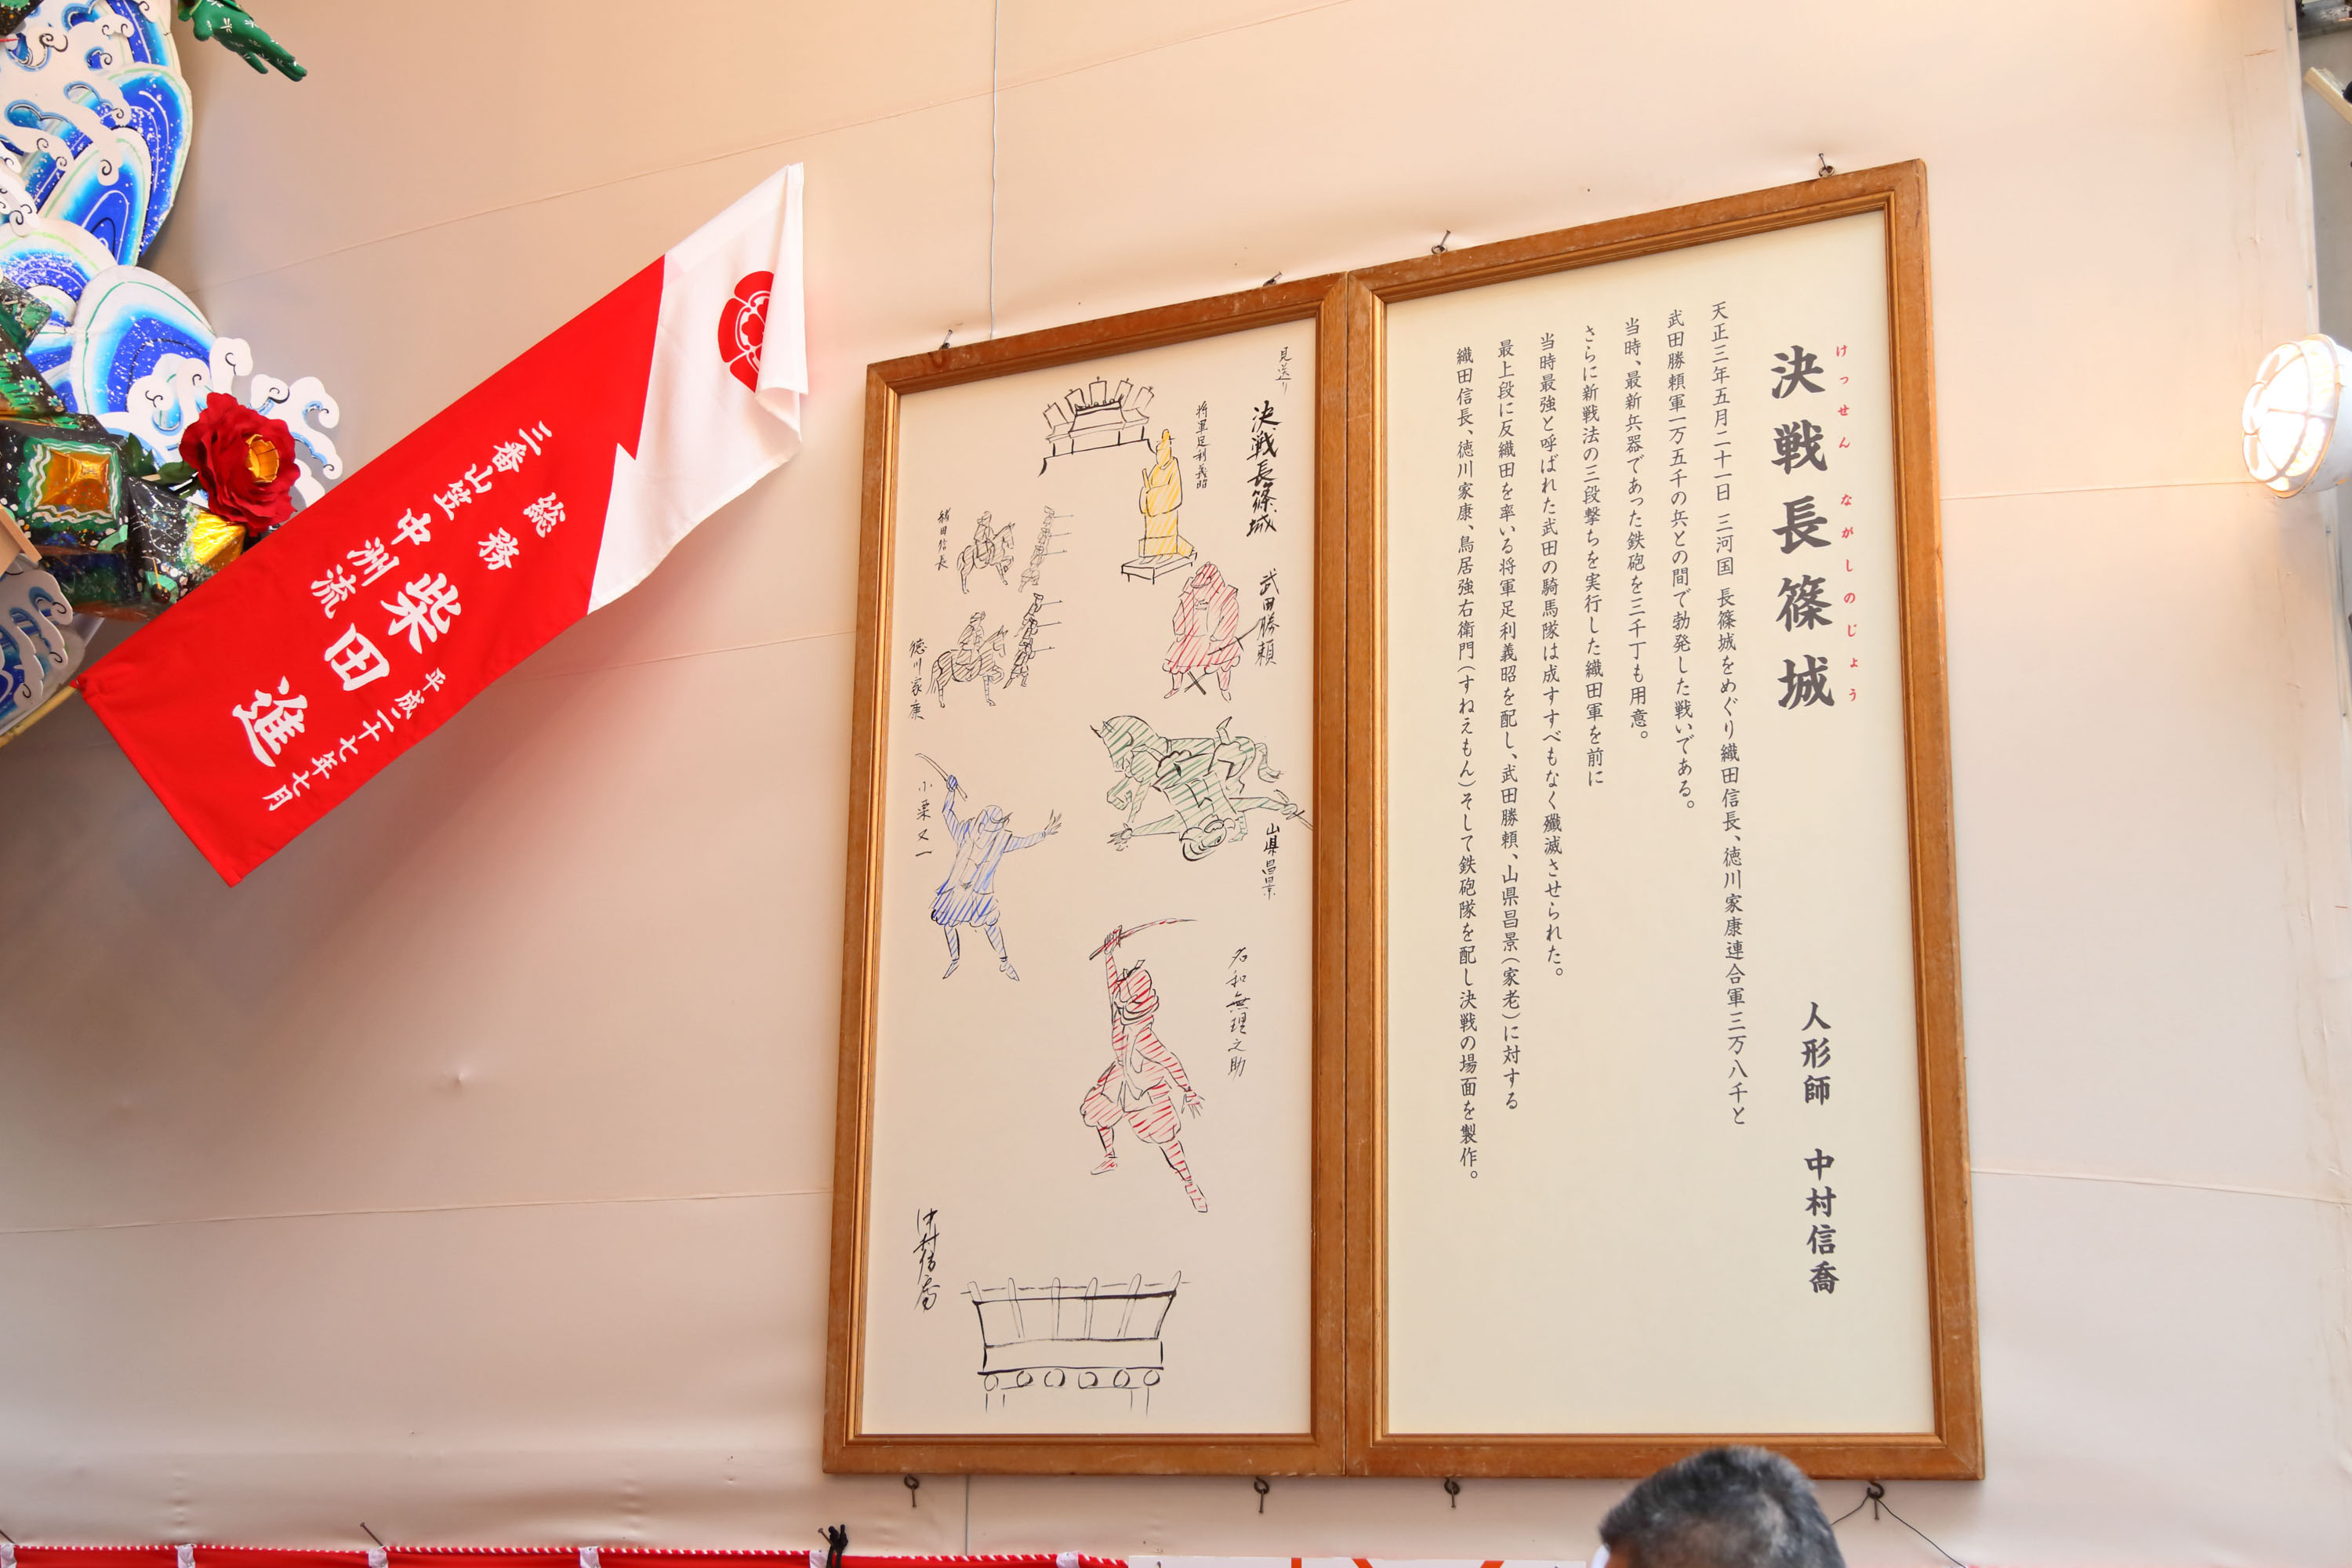 決戦長篠城
けっせん ながしのじょう
人形師 中村信喬
天正三年五月二十一日 三河国 長篠城をめぐり織田信長、徳川家康連合軍三万八千と
武田勝頼軍一万五千の兵との間で勃発した戦いである。
当時、最新兵器であった鉄砲を三千丁も用意。
さらに新戦法の三段撃ちを実行した織田軍を前に
当時最強と呼ばれた武田の騎馬隊は成すすべもなく殲滅させられた。
最上段に反織田を率いる将軍足利義昭を配し、武田勝頼、山県昌景(家老)に対する
織田信長、徳川家康、鳥居強右衛門(すねえもん)そして鉄砲隊を配し決戦の場面を製作。
見送り
決戦長篠城
将軍足利義昭
武田勝頼
織田信長
徳川家康
山県昌景
小栗又一
名和無理之助
中村信喬
平成二十七年七月
総務
柴田進
三番山笠
中洲流